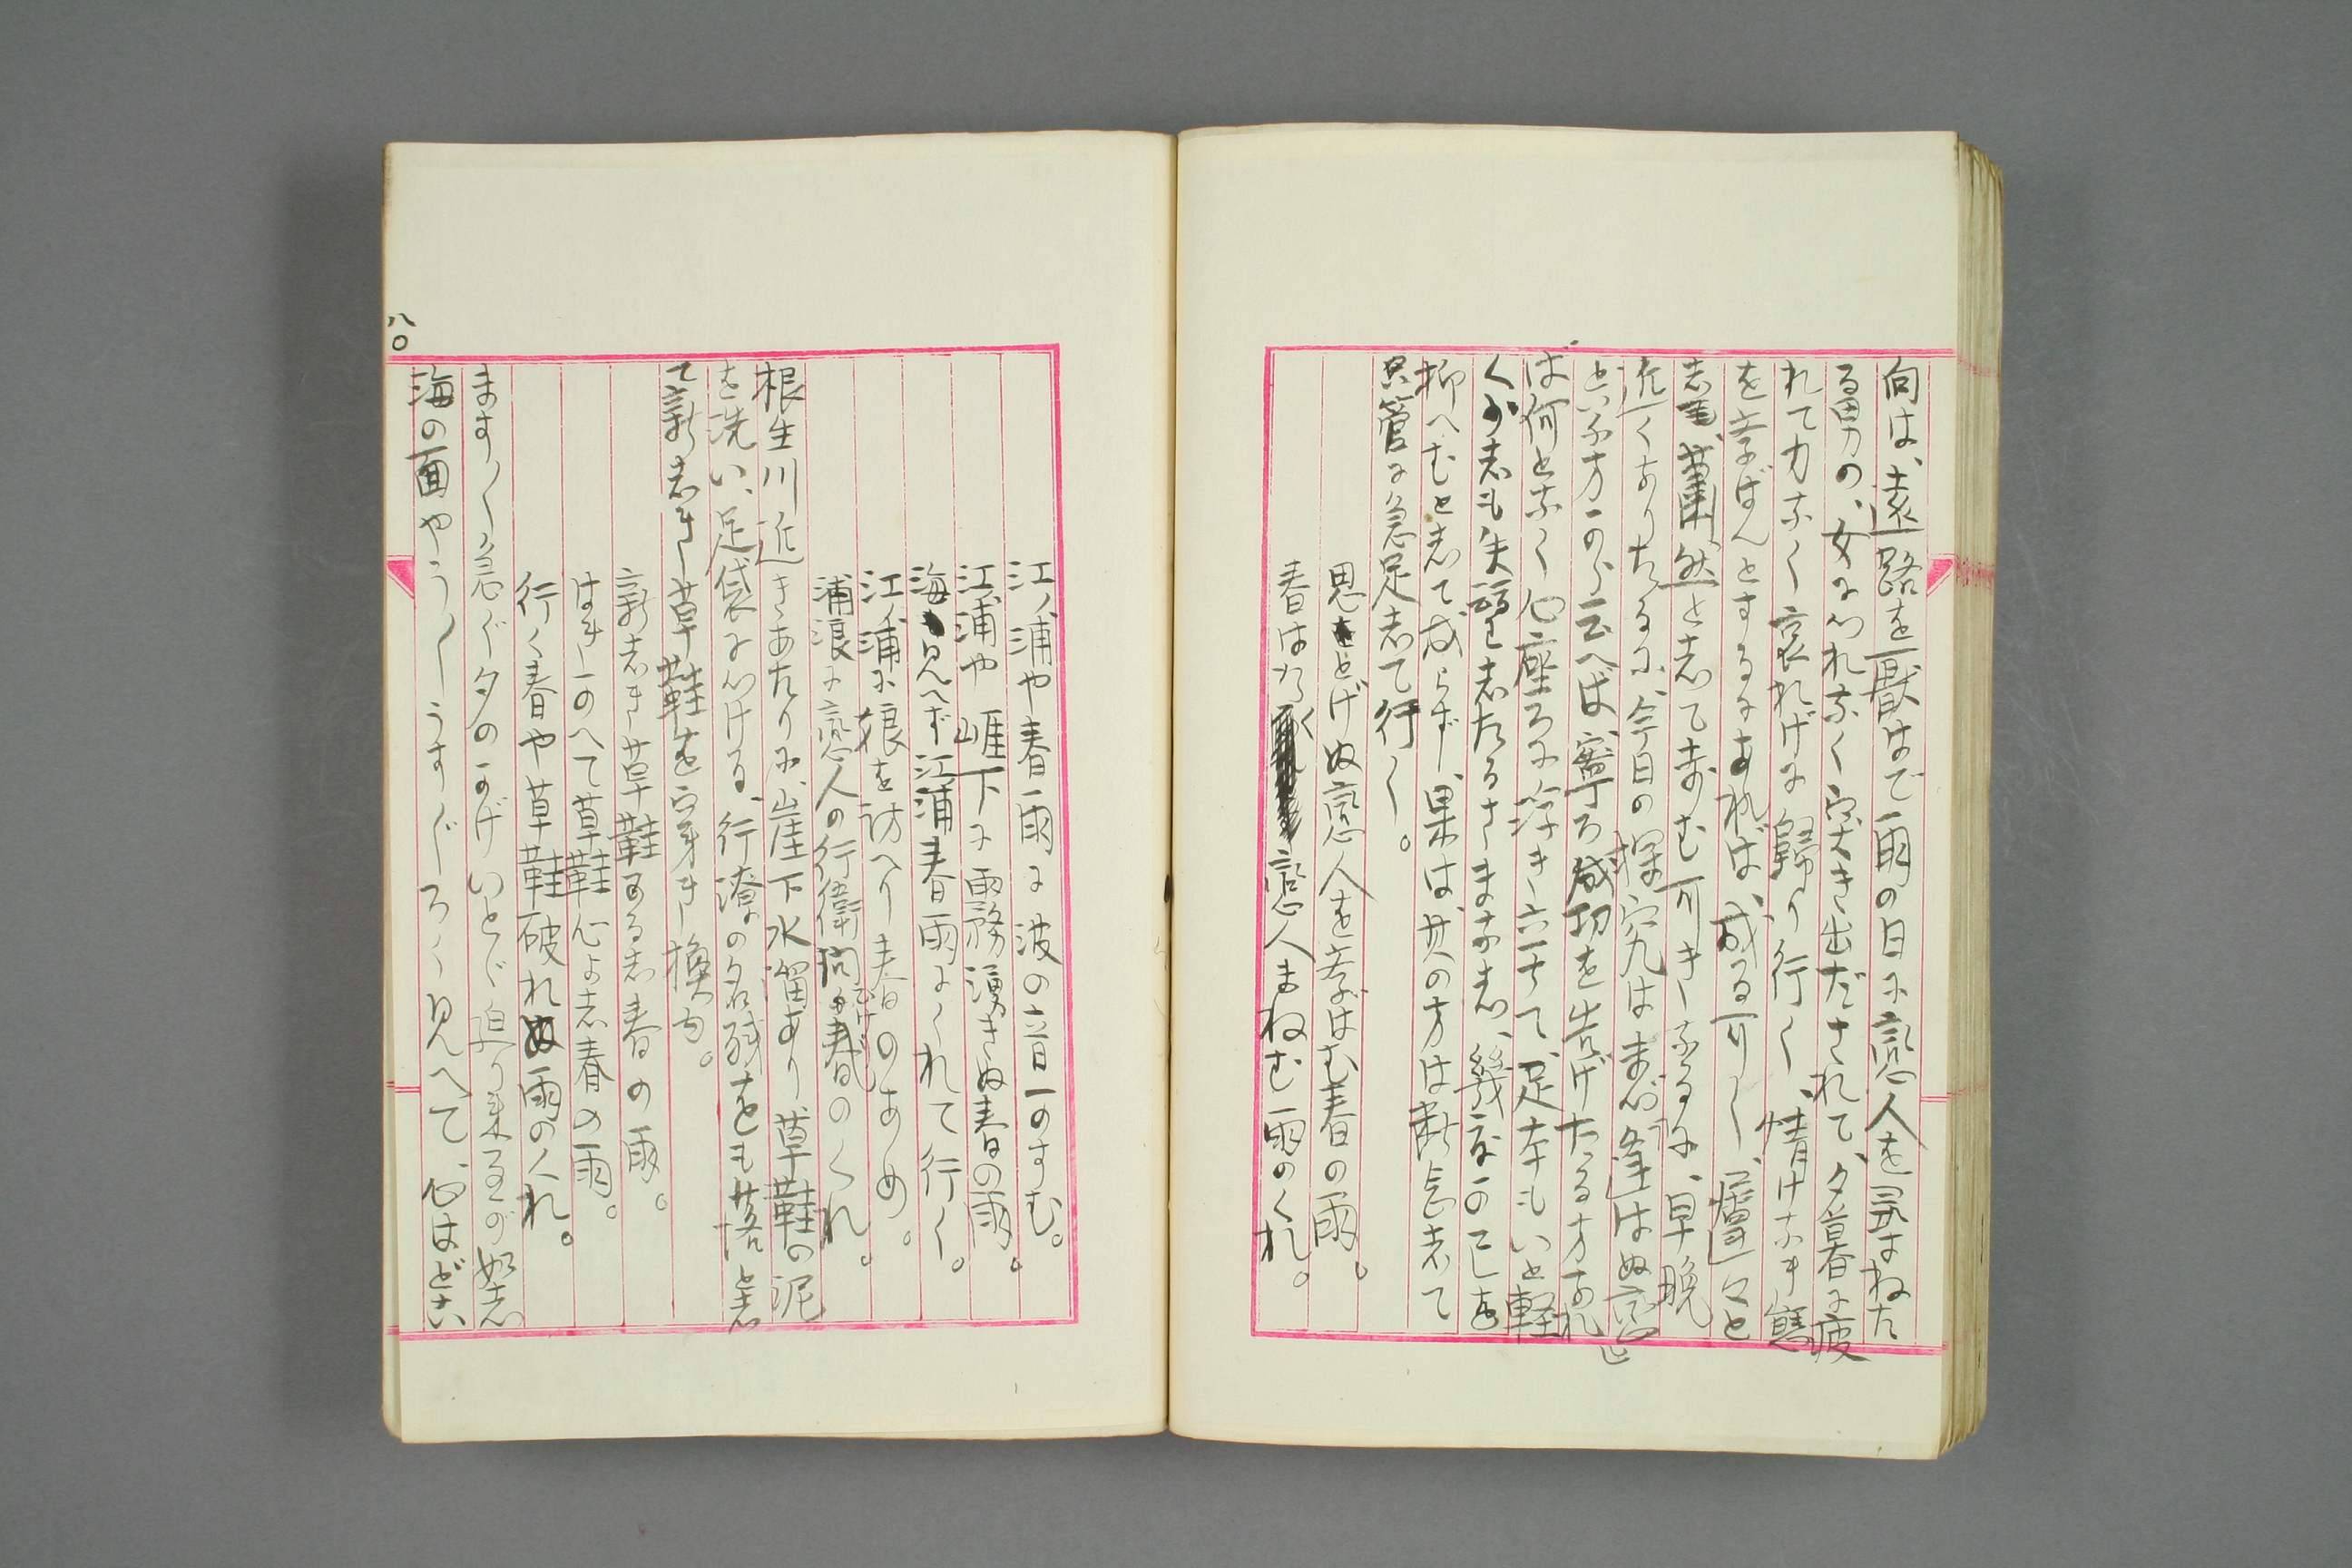 向は、遠路を厭はで雨の日に恋人を尋ねた
る男の、女につれなく突き出だされて、夕暮に疲
れて力なく哀れげに歸り行く、情けなき態
をまなばんとするにあれば、成る可く、
然として歩む可きなるに、早晩
近くありたるに、今日の探究はまだ逢はぬ恋
といふ方のら云へば、寧ろ成功を告げたる方なれ
ば何となく心座ろに浮き立ちて、足本もいと軽
く少しも失望したるさまなし、幾度のこしを
抑へむとして成らず、果は其の方は断念して
只管に急足して行く。
思ひとげぬ恋人をまなばむ春の雨。
恋人まねむ雨のくれ。
江ノ浦や春雨に波の音のすむ。
江ノ浦や崕下に霧湧きぬ春の雨。
海も見へず江ノ浦春雨にくれて行く。
江ノ浦に娘を訪へり春のあめ。
浦浪に恋人の行衛問ひけり春のくれ。
根生川近きあたりに、崖下水溜あり、草鞋の泥
を洗い、足袋につける、行潦の名残をも落とし
て新しき草鞋を穿き換ゆ。
新しき草鞋するし春の雨。
はきのへて草鞋心よし春の雨。
行く春や草鞋破れぬ雨のくれ。
ます〱急ぐ夕のかげいとゞ迫り来るが如し
海の面やう〱うすぐろく見へて、心はどさい
八〇